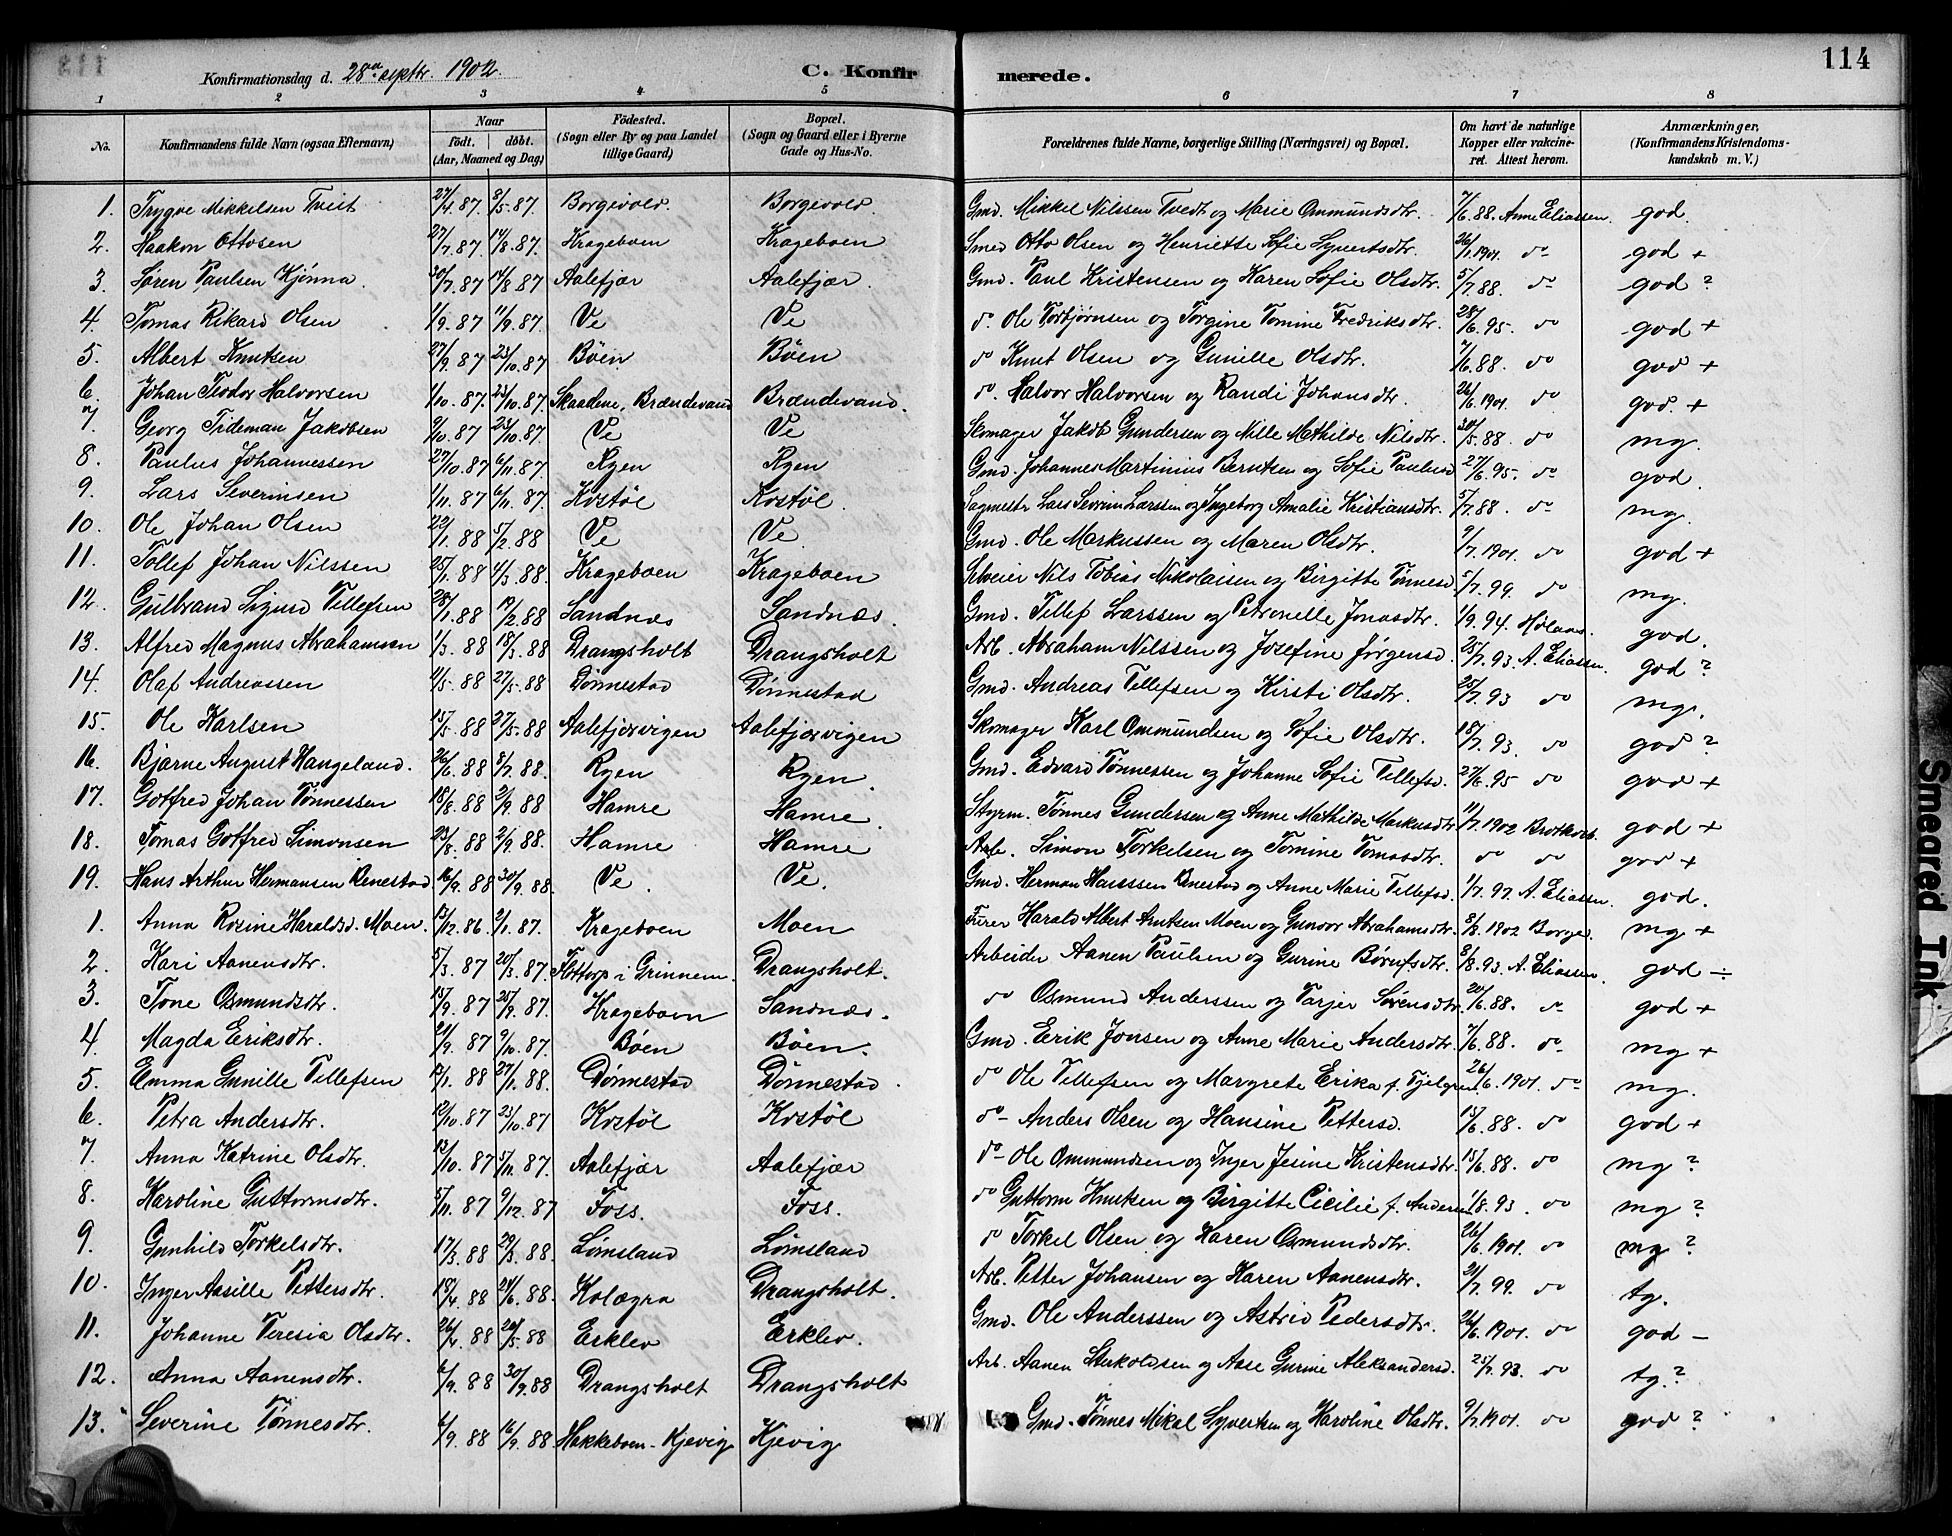 114
Konfirmationsdag d. 28de septbr. 1902. C. Konfirmerede.
1 2 3 4 5 6 7 8
No. Konfirmandens fulde Navn (ogsaa Efternavn) Naar født. døbt. (Aar, Maaned og Dag) Fødested. (Sogn eller By og paa Landet tillige Gaard) Bopæl. (Sogn og Gaard eller i Byerne Gade og Hus-No. Forældrenes fulde Navne, borgerlige Stilling (Næringsvei) og Bopæl. Om havt de naturlige Kopper eller vakcineret. Attest herom. Anmærkninger, (Konfirmandens Kristendomskundskab m. V.)
1. Trygve Mikkelsen Tveit 27/4.87. 8/5.87. Borgevold. Borgevold. Gmd. Mikkel Nilssen Tvedt og Marie Ommundsdtr. 7/6.88. Anne Eliassen. god.
2. Haakon Ottosen 27/7.87. 14/8.87. Krageboen Krageboen Smed Otto Olsen og Henriette Sofie Syvertsdtr. 26/1.1901. do god +
3. Søren Paulsen Kjønna 30/7.87 14/8.87 Aalefjær Aalefjær. Gmd. Paul Kristensen og Karen Sofie Olsdtr. 5/7.88. do god ?
4. Tomas Rikard Olsen 1/9.87 11/9.87. Ve Ve do. Ole Torbjørnsen og Torgine Tomine Fredriksdtr. 28/6.95. do god +
5. Albert Knutsen 27/9.87 23/10.87. Bøen Bøen do Knut Olsen og Gunille Olsdtr. 7/6.88. do god +
6. Johan Teodor Halvorsen 1/10.87. 23/10.87. Skaadene, Brændevand Brændevand. do. Halvor Halvorsen og Randi Johansdtr. 26/6.1901. do god. +
7. Georg Tideman Jakobsen 9/10.87 23/10.87. Ve Ve Skomager Jakob Gundersen og Nille Mathilde Nilsdtr. 30/5.88. do mg.
8. Paulus Johannessen 27/10.87 6/11.87. Ryen Ryen Gmd. Johannes Martinius Berntsen og Sofie Paulusd 27/6.95. do god.
9. Lars Severinsen 1/11.87 6/11.87. Kostøl Kostøl. Sagmestr Lars Severin Larssen og Ingeborg Amalie Kristiansdtr. 5/7.88. do mg.
10. Ole Johan Olsen 22/1.88 5/2.88 Ve Ve. Gmd. Ole Markussen og Maren Olsdtr. 9/7.1901. do god +
11. Tollef Johan Nilssen 25/1.88 4/3.88. Krageboen Krageboen Selveier Nils Tobias Nikolaisen og Birgitte Tønnesd. 5/7.99. do mg.
12. Gulbrand Sigurd Tillefsen 28/1.88 19/2.88 Sandnæs Sandnæs. Gmd. Tillef Larssen og Petronelle Jonasdtr. 1/9.94. god.
13. Alfred Magnus Abrahamsen 1/3.88 18/3.88 Drangsholt Drangsholt Arb. Abraham Nilssen og Josefine Jørgensd. 25/7.93. A. Eliassen. god ?
14. Olaf Andreassen 9/5.88 27/5.88 Dønnestad Dønnestad Gmd. Andreas Tillefsen og Kirsti Olsdtr. 25/7.93 do mg.
15. Ole Karlsen 15/5.88 27/5.88 Aalefjærvigen Aalefjærvigen Skomager Karl Ommundsen og Sofie Olsdtr. 18/7.93. do god ?
16. Bjarne August Haugeland. 26/6.88 8/7.88. Ryen Ryen. Gmd. Edvard Tønnessen og Johanne Sofie Tillefsd. 27/6.95 do god +
17. Gotfred Johan Tønnessen 18/8.88 2/9.88 Hamre Hamre. Styrm. Tønnes Gundersen og Anne Mathilde Markusdtr 11/7.1902 god +
18. Tomas Gotfred Simonsen 23/8.88 2/9.88. Hamre Hamre Arb. Simon Torkelsen og Tomine Tomasdtr. do do god +
19. Hans Arthur Hermansen Renestad 16/9.88 30/9.88. Ve. Ve. Gmd. Herman Hanssen Renestad og Anne Marie Tillefsd. 1/7.97. A. Eliassen. god.
1. Anna Rosine Haraldsd. Moen. 13/12.86. 2/1.87. Krageboen Moen Furer Harald Albert Knutsen Moen og Gunvor Abrahamsdtr. 8/2.1902 Borge. mg +
2. Kari Aanensdtr. 5/3.87 20/3.87. Flottorp i Grinnem. Drangsholt. Arbeider Aanen Paulsen og Gurine Børufsdtr. 8/8.93. A. Eliassen. god ÷
3. Tone Osmundsdtr. 15/9.87 25/9.87. Krageboen Sandnæs. do Osmund Anderssen og Tarjer Sørensdtr. 20/6.88. do god +
4. Magda Eriksdtr. 21/9.87 9/10.87. Bøen Bøen. Gmd. Erik Jonsen og Anne Marie Andersdtr. 7/6.88. do mg +
5. Emma Gunille Tillefsen 12/1.88 27/1.88. Dønnestad Dønnestad. do Ole Tillefsen og Margrete Erika f. Fjelgren 26/6.1901. do mg.
6. Petra Andersdtr. 12/10.87 23/10.87 Kostøl Kostøl do Anders Olsen og Hansine Pettersd. 15/6.88. do god +
7. Anna Katrine Olsdtr. 13/10.87 5/11.87. Aalefjær Aalefjær do Ole Ommundsen og Inger Jesine Kristensdtr. 15/6.88. do mg ?
8. Karoline Guttormsdtr. 5/11.87 9/12.87 Foss. Foss. do Guttorm Knutsen og Birgitte Cicilie f. Andersen 1/8.93. do mg ?
9. Gunhild Torkelsdtr. 17/3.88 29/3.88. Lømsland Lømsland do Torkel Olsen og Karen Osmundsdtr. 26/6.1901. do mg ?
10. Inger Aasille Pettersdtr. 18/4.88 24/6.88. Kologra Drangsholt. Arb. Petter Johansen og Karen Aanensdtr. 21/7.99. do tg.
11. Johanne Teresia Olsdtr. 26/4.88 20/5.88 Erklev Erklev. Gmd. Ole Anderssen og Astrid Pedersdtr. 26/6.1901. do god –
12. Anna Aanensdtr. 6/9.88 30/9.88 Drangsholt Drangsholt Arb. Aanen Stukoldsen og Aase Gurine Aleksandersd. 25/7.93. do tg. ?
13. Severine Tønnesdtr. 6/9.88 16/9.88 Hakkeboen - Kjevig Kjevig Gmd. Tønnes Mikel Syvertsen og Karoline Olsdtr. 9/7.1901. do god ?
Smeared Ink